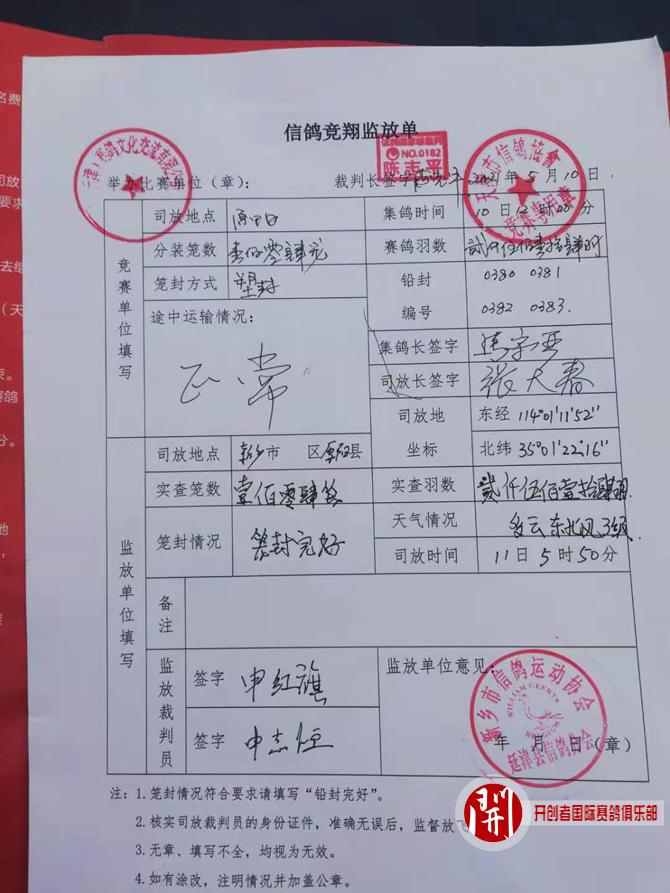 信鸽竞翔监放单
NO.0182
陈志平
举办比赛单位（章）： 裁判长签字 2021年5月10日
天津市信鸽协会
竞赛专用章
竞赛单位填写
司放地点 原阳 集鸽时间 10日12时00分
分装笼数 壹佰零肆笼 赛鸽羽数 贰仟伍佰壹拾肆羽
笼封方式 塑封 铅封 0380 0381
编号 0382 0383.
途中运输情况： 正常
集鸽长签字
司放长签字 张大春
司放地 东经 114°01'11.52"
坐标 北纬 35°01'22.16"
监放单位填写
司放地点 新乡市 区原阳县
实查笼数 壹佰零肆笼 实查羽数 贰仟伍佰壹拾肆羽
笼封情况 笼封完好 天气情况 多云东北风3级
司放时间 11日5时50分
备注
监放裁判员
签字 申红旗 监放单位意见：
签字 申志恒
新乡市信鸽运动协会
WILLIAM GEERTS
BELGIUM
延津县信鸽分会
年 月 日（章）
注：1.笼封情况符合要求请填写“铅封完好”。
2.核实司放裁判员的身份证件，准确无误后，监督放飞
3.无章、填写不全，均视为无效。
4.如有涂改，注明情况并加盖公章。
開
开创者国际赛鸽俱乐部